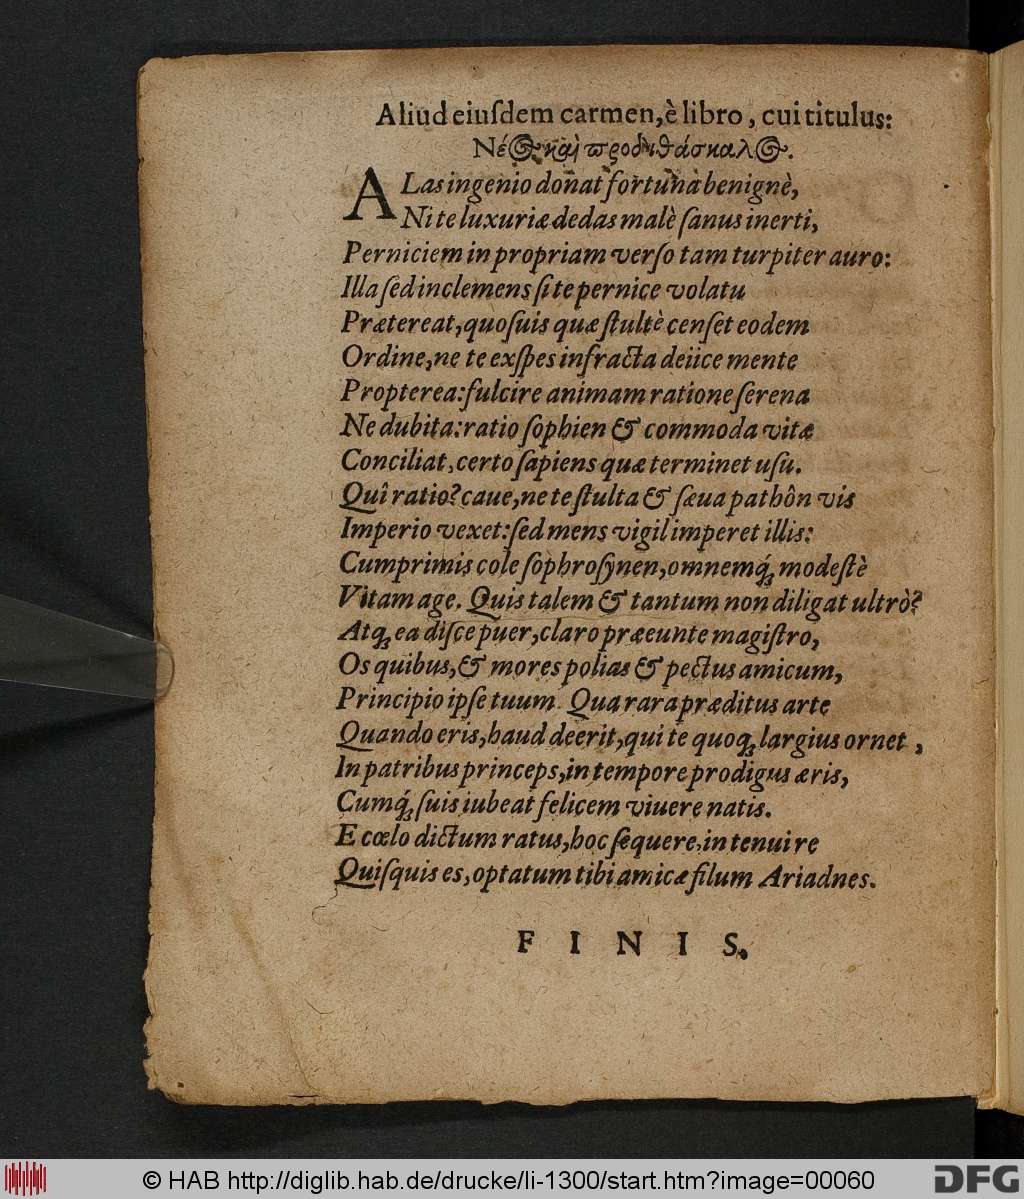 Aliud eiuſdem carmen, è libro, cui titulus:
Νέος καὶ προδιδάσκαλος.
ALas ingenio donat fortuna benignè,
Ni te luxuriæ dedas malè ſanus inerti,
Perniciem in propriam verſo tam turpiter auro:
Illa ſed inclemens ſi te pernice volatu
Prætereat, quoſuis quæ ſtultè cenſet eodem
Ordine, ne te exſpes infracta deiice mente
Propterea: fulcire animam ratione ſerena
Ne dubita: ratio ſophien & commoda vitæ
Conciliat, certo ſapiens quæ terminet uſu.
Quî ratio? caue, ne te ſtulta & ſæua pathôn vis
Imperio vexet: ſed mens vigil imperet illis:
Cumprimis cole ſophroſynen, omnemq́ꝫ modeſtè
Vitam age. Quis talem & tantum non diligat ultrò?
Atqꝫ ea diſce puer, claro præeunte magiſtro,
Os quibus, & mores polias & pectus amicum,
Principio ipſe tuum. Qua rara præditus arte
Quando eris, haud deerit, qui te quoqꝫ largius ornet,
In patribus princeps, in tempore prodigus æris,
Cumq́ꝫ ſuis iubeat felicem viuere natis.
E cœlo dictum ratus, hoc ſequere, in tenui re
Quiſquis es, optatum tibi amicæ filum Ariadnes.
FINIS.
© HAB http://diglib.hab.de/drucke/li-1300/start.htm?image=00060
DFG